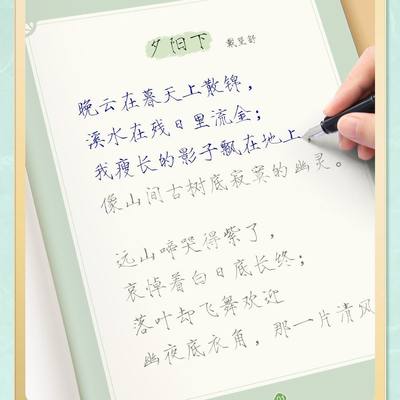 夕阳下
戴望舒
晚云在暮天上散锦,
溪水在残日里流金;
我瘦长的影子飘在地上
像山间古树底寂寞的幽灵。
远山啼哭得紫了,
哀悼着白日底长终;
落叶却飞舞欢迎
幽夜底衣角,那一片清风